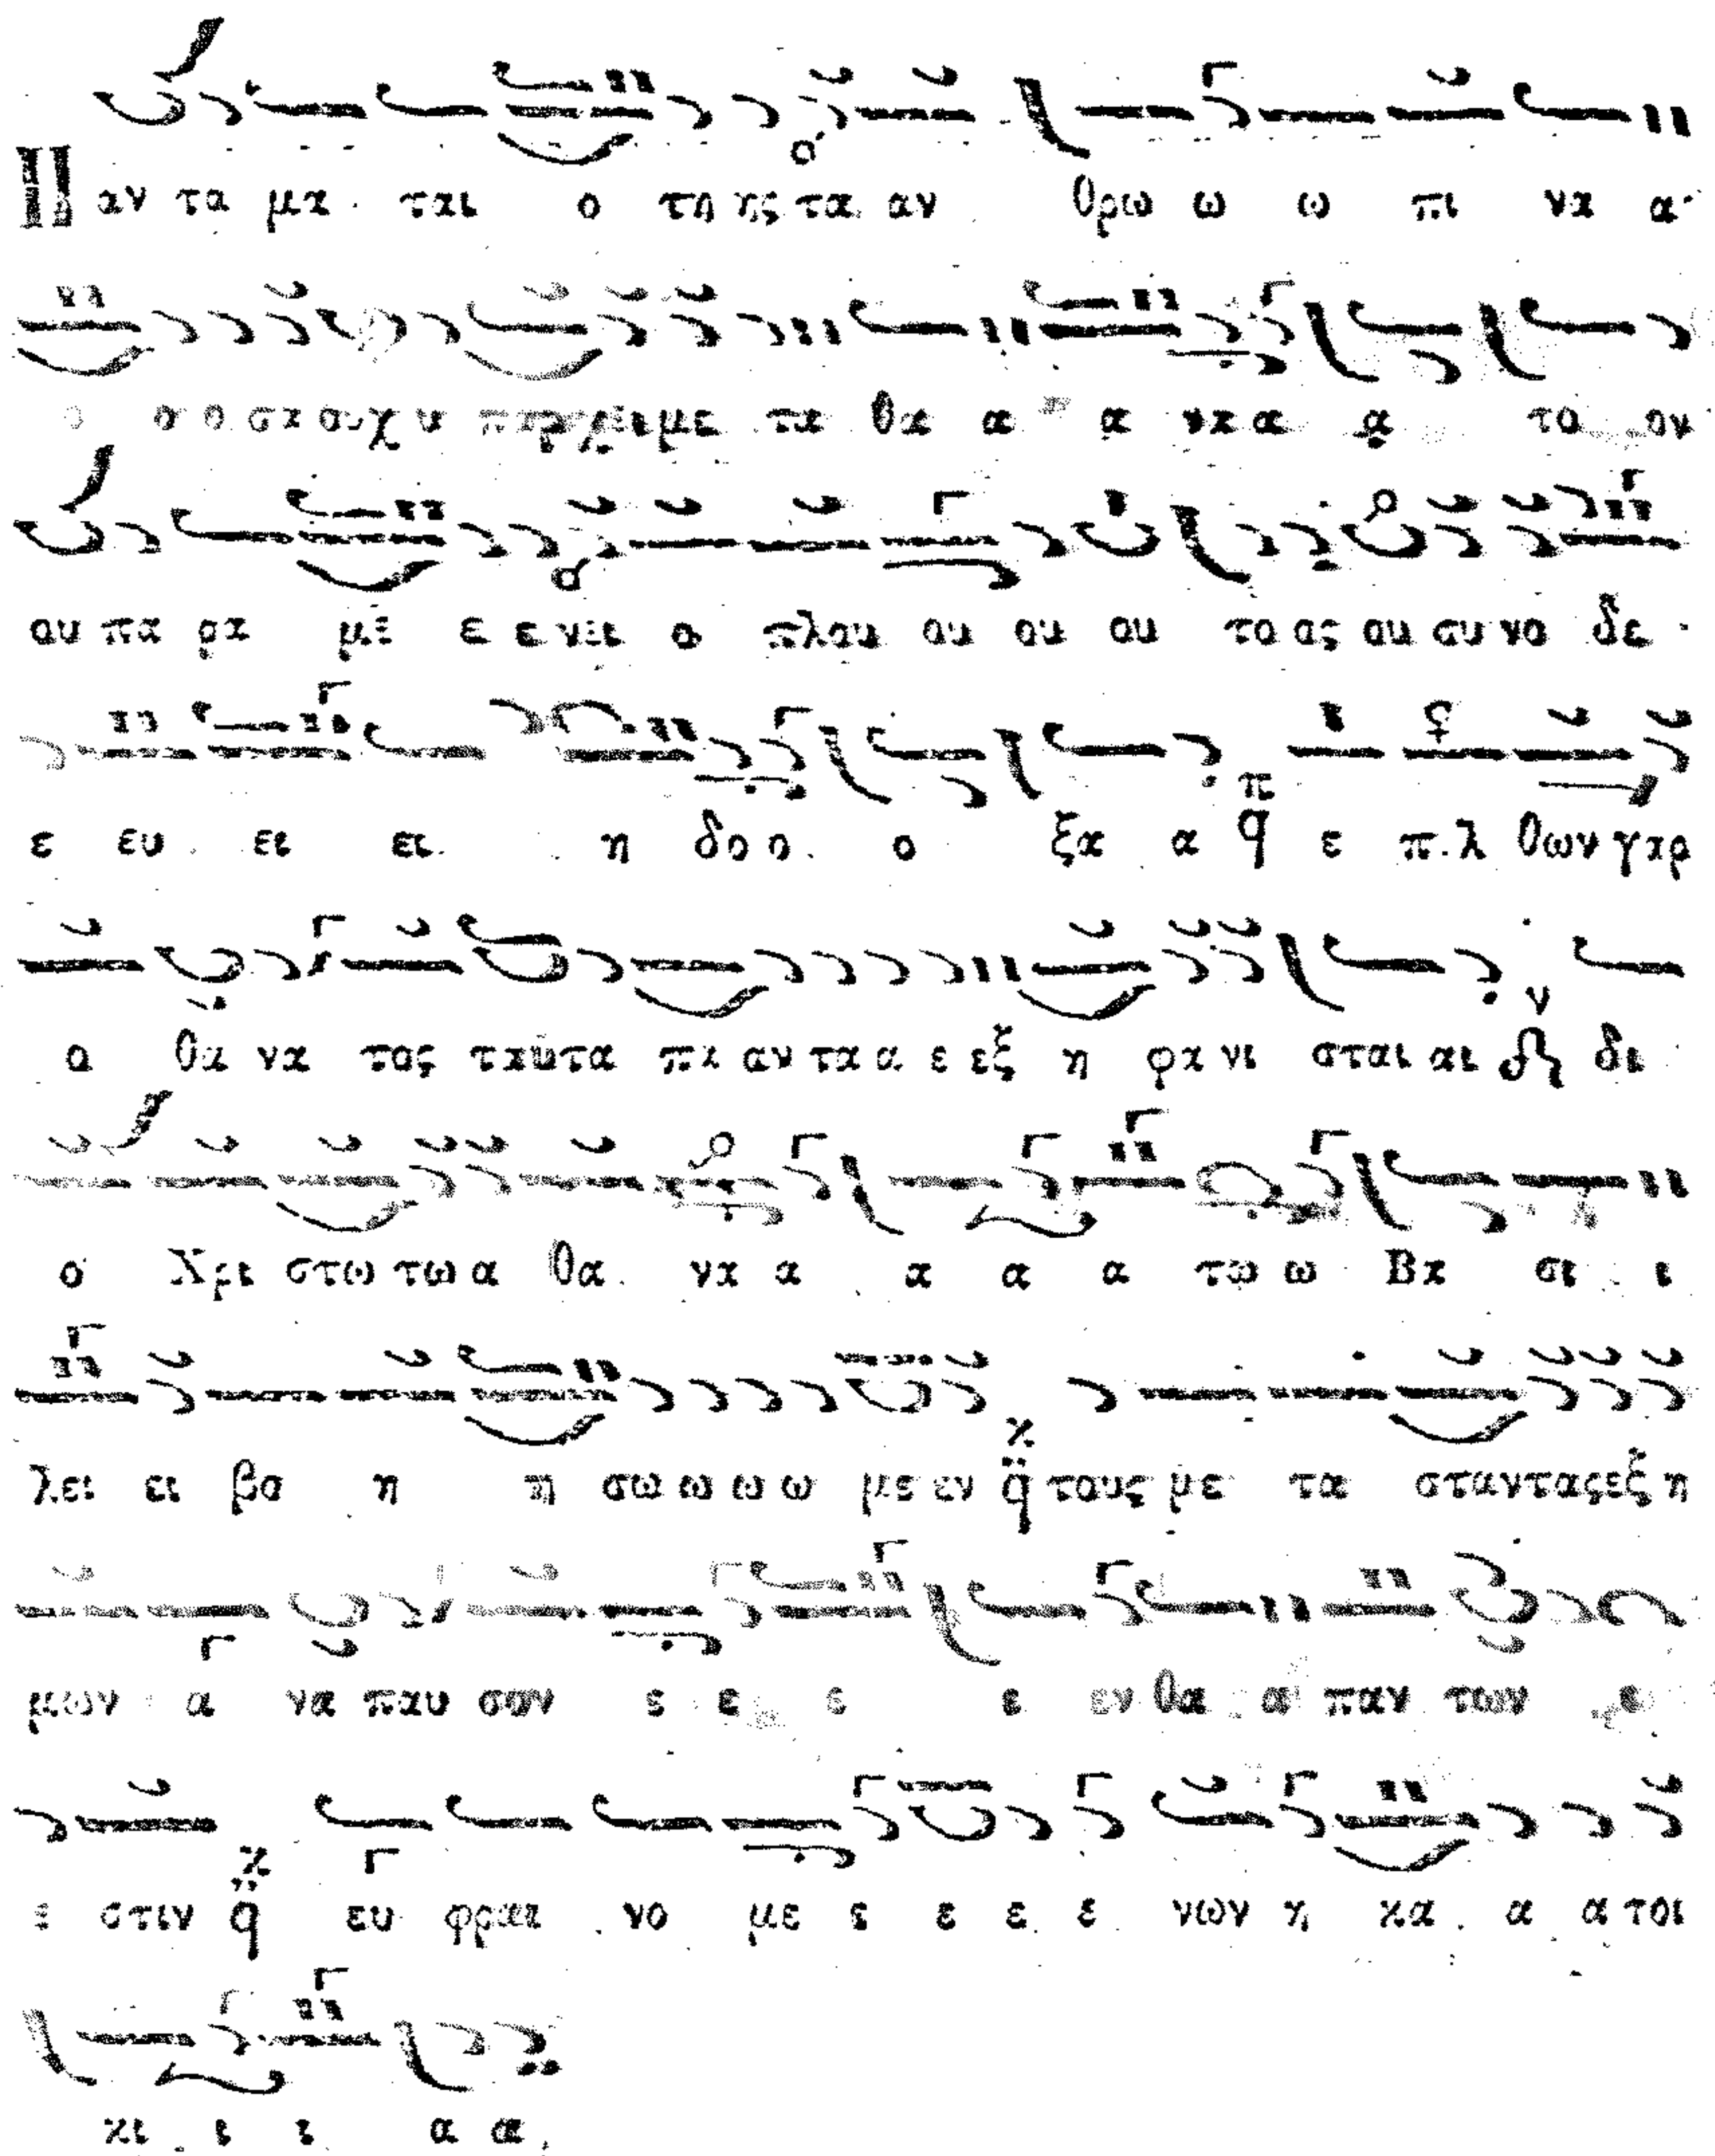 Παν τα μα ται ο τη ης τα αν θρω ω ω πι να α
ο σ ο σα ουχ υ παρχει με τα θα α α να α α το ον
ου πα ρα με ε ε νει ο πλου ου ου ου το ος ου συ νο δε
ε ευ ει ει η δο ο ο ξα α π̅ q ε π.λ θων γαρ
ο θα να τος ταυτα πα αν τα α ε εξ η φα νι σται αι ν δι
ο Χρι στω τω α θα να α α α α τω ω Βα σι ι
λει ει βο η η σω ω ω ω με εν κ q τους με τα σταντας εξ η
μων α να παυ σον ε ε ε ε εν θα α παν των ε
ε στιν κ q ευ φραι νο με ε ε ε ε νων η κα α α τοι
κι ι ι α α.